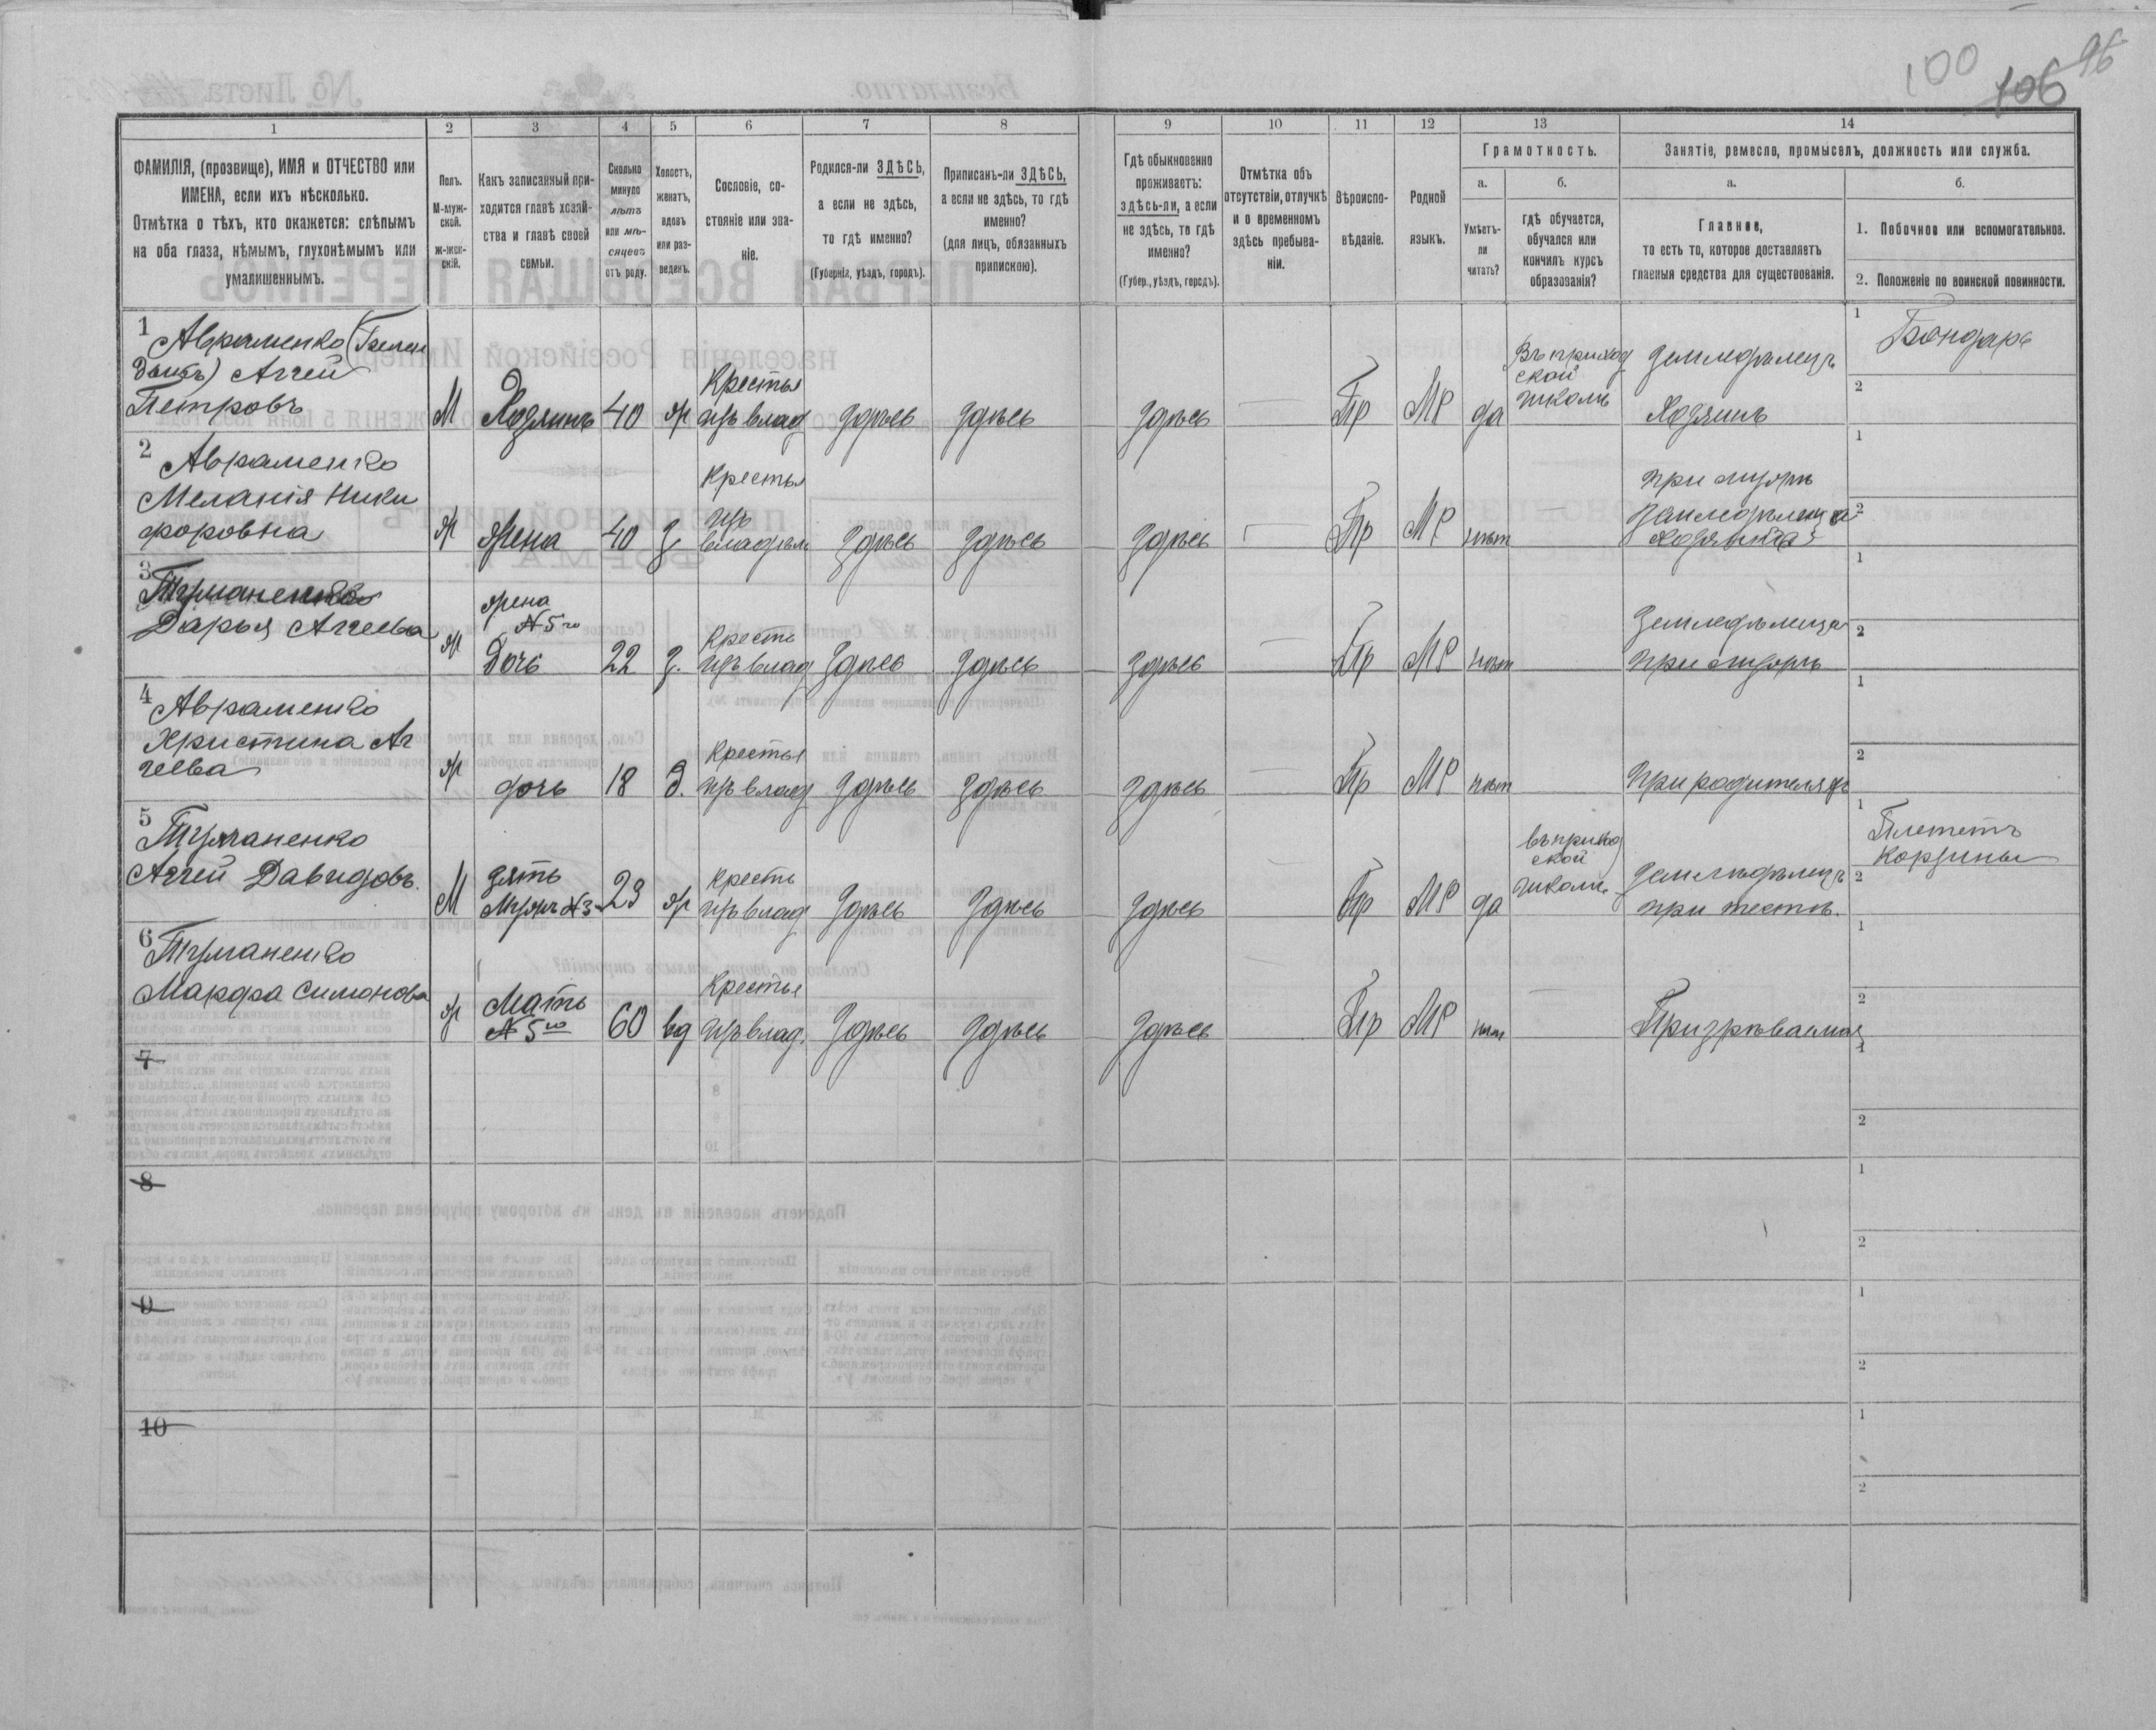 100 106 96
1 2 3 4 5 6 7 8 9 10 11 12 13 14
ФАМИЛІЯ, (прозвище), ИМЯ и ОТЧЕСТВО или
ИМЕНА, если ихъ нѣсколько.
Отмѣтка о тѣхъ, кто окажется: слѣпымъ
на оба глаза, нѣмымъ, глухонѣмымъ или
умалишеннымъ.
Полъ.
М-муж-
ской.
ж-жен-
скій.
Какъ записанный при-
ходится главѣ хозяй-
ства и главѣ своей
семьи.
Сколько
минуло
лѣтъ
или мѣ-
сяцевъ
отъ роду.
Холостъ,
женатъ,
вдовъ
или раз-
веденъ.
Сословіе, со-
стояніе или зва-
ніе.
Родился-ли ЗДѢСЬ,
а если не здѣсь,
то гдѣ именно?
(Губернія, уѣздъ, городъ).
Приписанъ-ли ЗДѢСЬ,
а если не здѣсь, то гдѣ
именно?
(для лицъ, обязанныхъ
припискою).
Гдѣ обыкновенно
проживаетъ:
здѣсь-ли, а если
не здѣсь, то гдѣ
именно?
(Губер., уѣздъ, городъ).
Отмѣтка объ
отсутствіи, отлучкѣ
и о временномъ
здѣсь пребыва-
ніи.
Вѣроиспо-
вѣданіе.
Родной
языкъ.
Грамотность.
а.
Умѣетъ-
ли
читать?
б.
гдѣ обучается,
обучался или
кончилъ курсъ
образованія?
Занятіе, ремесло, промыселъ, должность или служба.
а.
Главное,
то есть то, которое доставляетъ
главныя средства для существованія.
б.
1. Побочное или вспомогательное.
2. Положеніе по воинской повинности.
1
Авраменко
Аггей
Петровъ
М Хозяинъ 40 ж
Крестья
изъ влад
здѣсь здѣсь здѣсь — Пр МР да
Въ приход
ской
школѣ
Земледѣлецъ
Хозяинъ
1 Бондарь
2
2
Авраменко
Меланія Ники
форовна
ж жена 40 з
Крестья
изъ
владѣл
здѣсь здѣсь здѣсь Пр МР нѣтъ —
при мужѣ
Земледѣлица
Хозяйка
1
2
3
Туманенко
Дарья Аггеева
ж
жена
№ 5го
Дочь
22 з.
Кресть
изъ влад
здѣсь здѣсь здѣсь — Пр МР нѣтъ
Земледѣлица
при мужѣ
1
2
4
Авраменко
Христина Аг
геева
ж дочь 18 д.
Крестья
изъ влад
здѣсь здѣсь здѣсь — Пр МР нѣтъ
при родителяхъ
1
2
5
Туманенко
Аггей Давидовъ.
М
зять
Мужъ №3
23 ж
Кресть
изъ влад
здѣсь здѣсь здѣсь — Пр МР да
въ приход
ской
школѣ
Земледѣлецъ
при тестѣ.
1
Плететъ
Корзины
2
6
Туманенко
Марфа Симонова
ж
Мать
№ 5го
60 вд
Крестья
изъ влад.
здѣсь здѣсь здѣсь — Пр МР нѣтъ —
Призрѣваемая
1
2
7
1
2
8
1
2
9
1
2
10
1
2